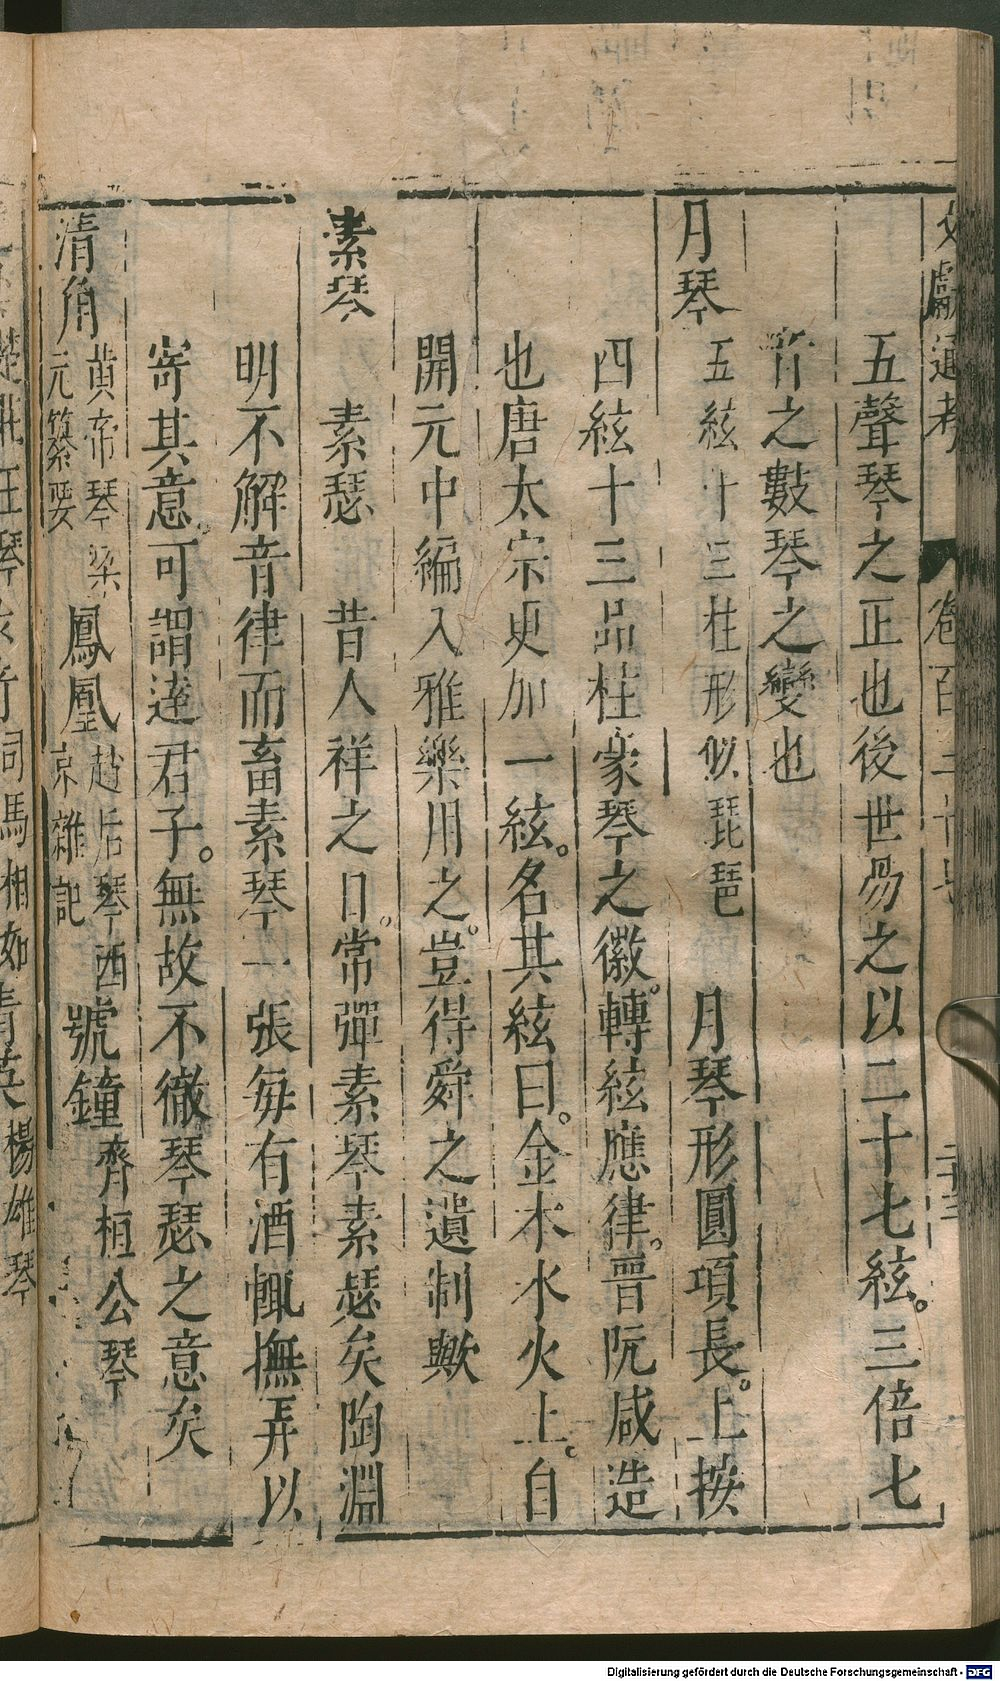 文獻通考 卷百三十七 二十三
五聲琴之正也後世易之以二十七絃。三倍七
音之數琴之變也
月琴 五絃十三柱形似琵琶 月琴形圓項長。上按
四絃十三品柱豪琴之徽。轉絃應律。晉阮咸造
也唐太宗更加一絃。名其絃曰。金木水火土。自
開元中編入雅樂用之。豈得舜之遺制歟
素琴 素瑟 昔人祥之日。常彈素琴素瑟矣陶淵
明不解音律而畜素琴一張每有酒輒撫弄以
寄其意。可謂達君子。無故不徹琴瑟之意矣
清角 黃帝琴梁元纂要 鳳凰 趙后琴西京雜記 號鐘 齊桓公琴
楚莊王琴 司馬相如 楊雄琴
Digitalisierung gefördert durch die Deutsche Forschungsgemeinschaft - DFG